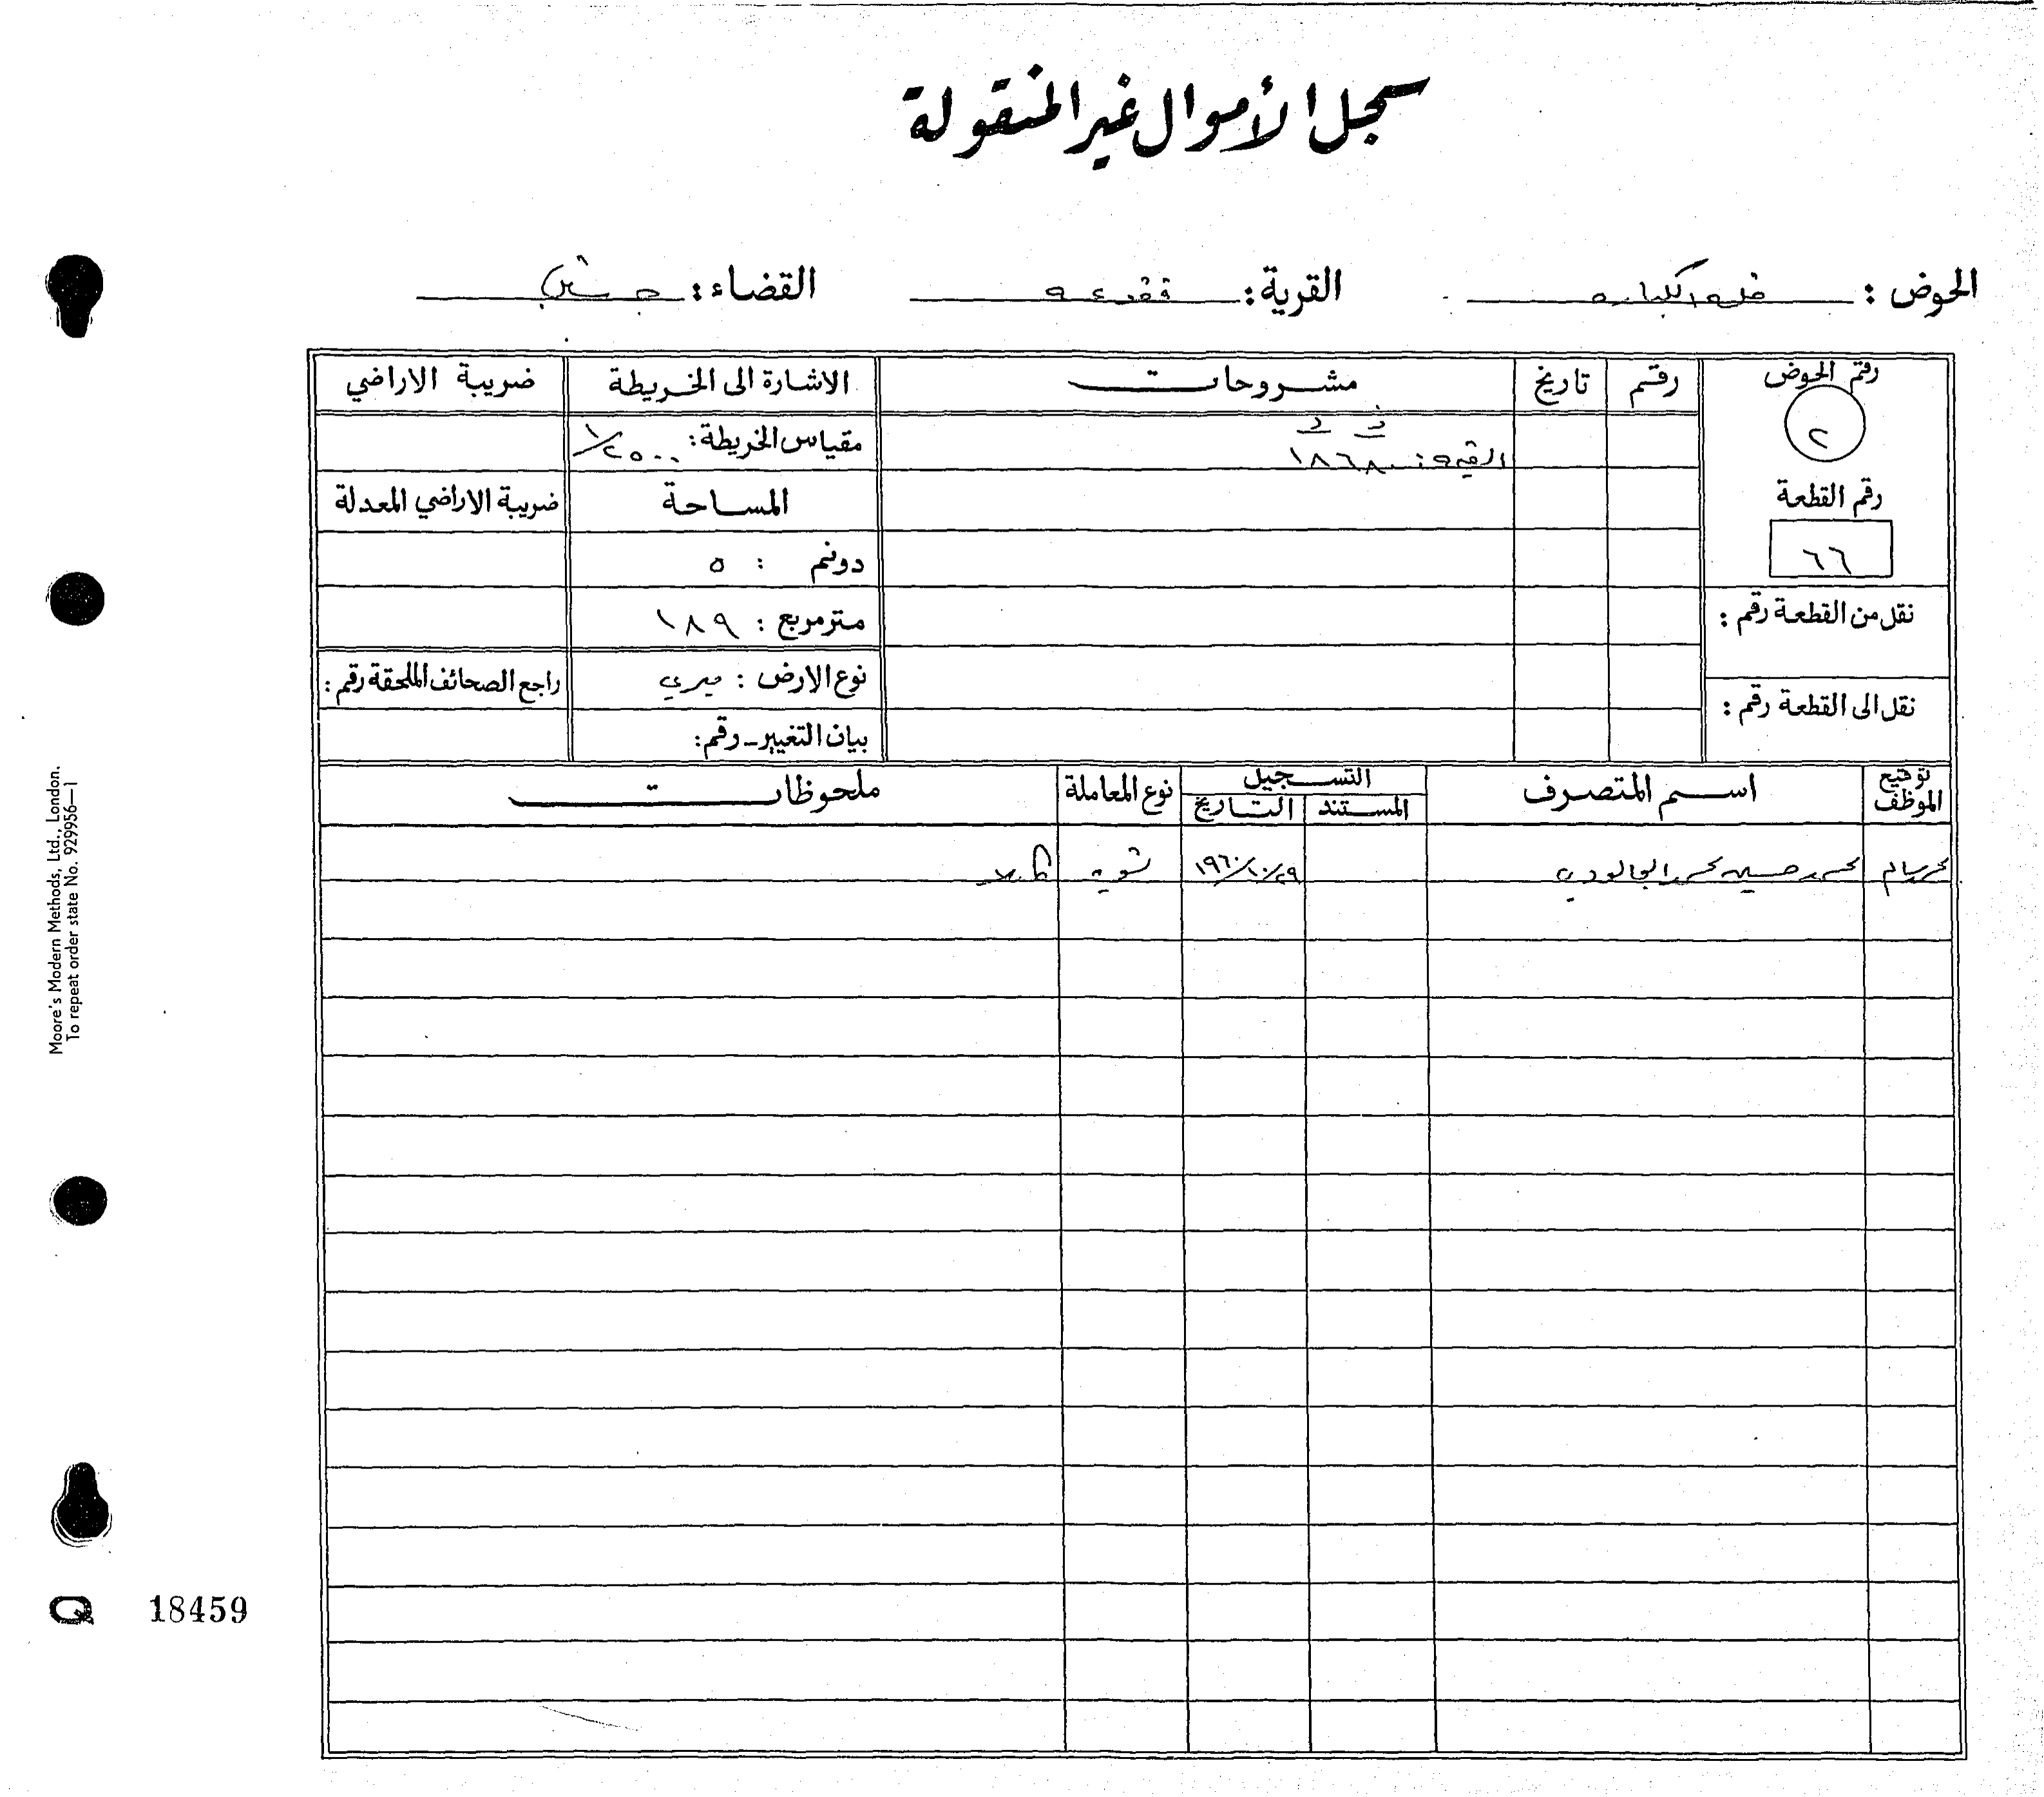 سجل الأموال غير المنقولة
الحوض : خلة الكباره القرية: فقوعه القضاء: جنين
رقم الحوض رقم تاريخ مشروحات الاشارة الى الخريطة ضريبة الاراضي
٢ القيمة: ١٨٦٨٠ مقياس الخريطة: ١/٢٥٠٠
رقم القطعة المساحة ضريبة الاراضي المعدلة
٦٦ دونم : ٥
نقل من القطعة رقم : مترمربع : ١٨٩
نوع الارض : ميري راجع الصحائف الملحقة رقم :
نقل الى القطعة رقم :
بيان التغيير - رقم:
توقيع الموظف اسم المتصرف التسجيل نوع المعاملة ملحوظات
المستند التاريخ
محمد حسين محمد الجالودي ١٩٦٠/١٠/٢٩ تسويه كاملا
Moore's Modern Methods, Ltd., London.
To repeat order state No. 929956—1
Q 18459